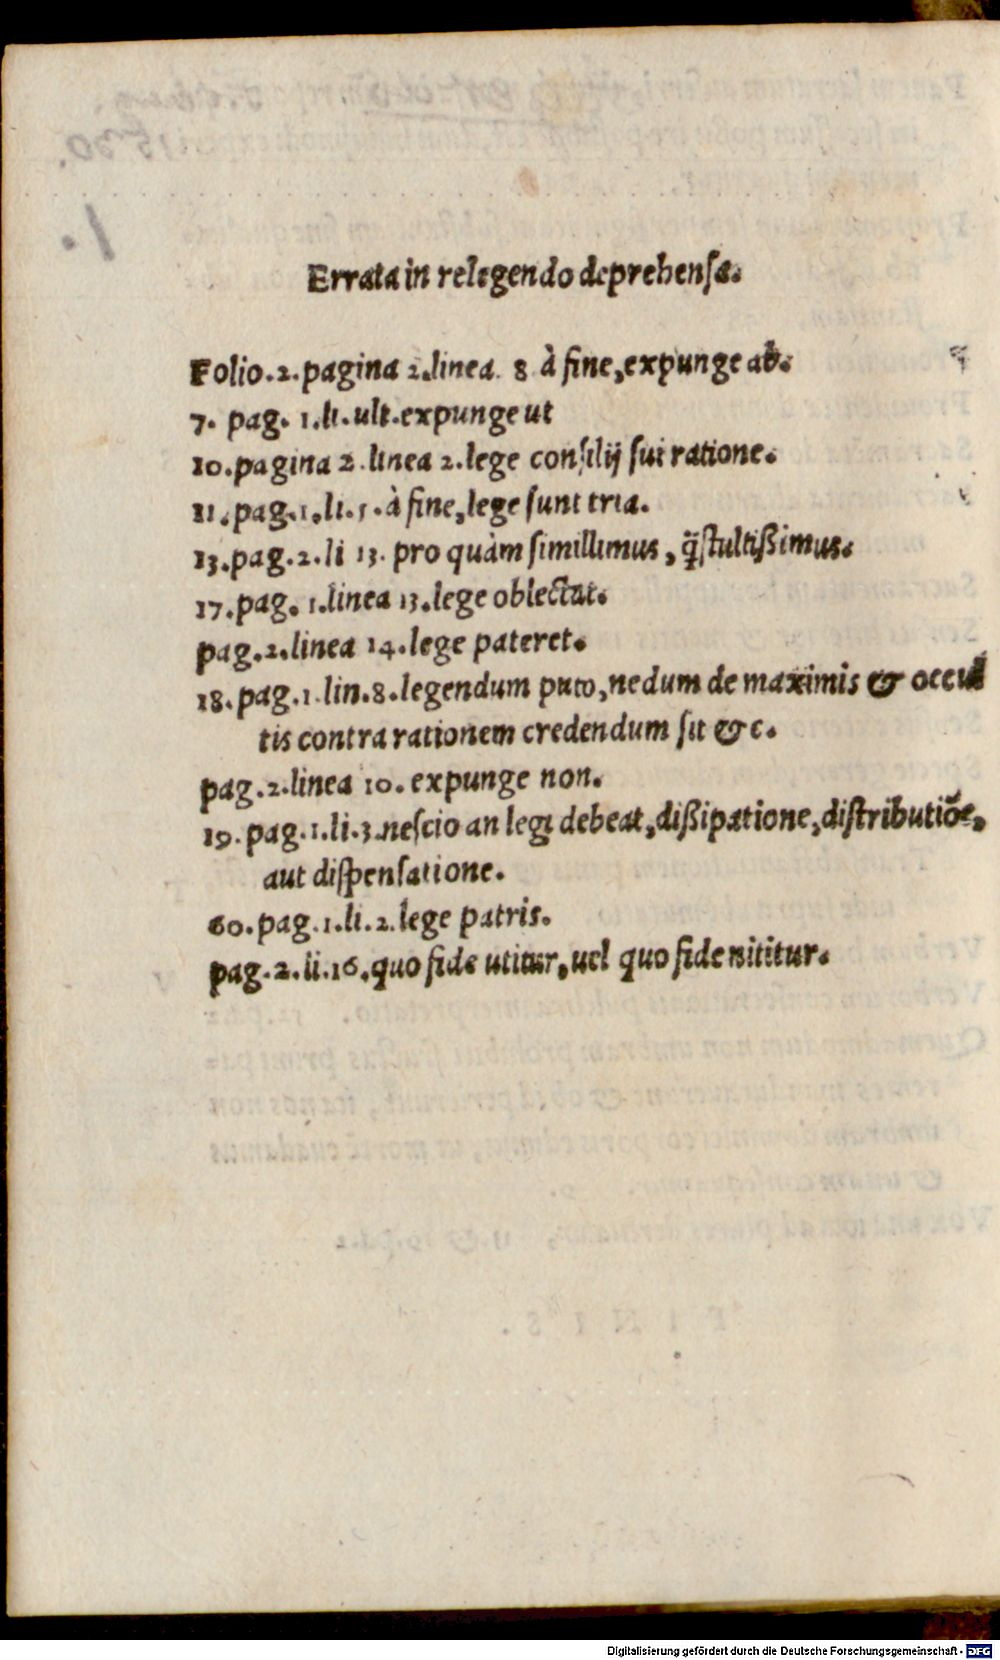 Errata in relegendo deprehensa.
Folio.2.pagina 2.linea 8 à fine,expunge ab.
7. pag. 1.li.ult.expunge ut
10.pagina 2.linea 2.lege consilij sui ratione.
11.pag.1.li.5.à fine,lege sunt tria.
13.pag.2.li 13. pro quàm simillimus, q̃ stultißimus.
17.pag. 1.linea 13.lege oblectat.
pag.2.linea 14.lege pateret.
18.pag.1.lin.8.legendum puto,nedum de maximis & occul
tis contra rationem credendum sit &c.
pag.2.linea 10. expunge non.
19.pag.1.li.3.nescio an legi debeat,dißipatione,distributiõe,
aut dispensatione.
60.pag.1.li.2.lege patris.
pag.2.li.16.quo fide utitur,uel quo fide nititur.
Digitalisierung gefördert durch die Deutsche Forschungsgemeinschaft - DFG